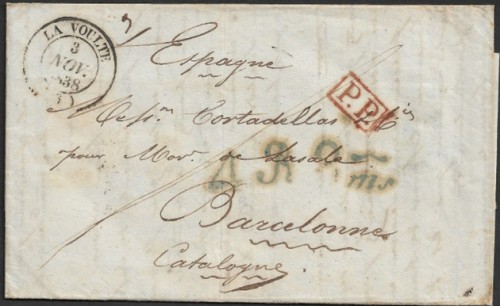 LA VOULTE
3
NOV.
1838
Espagne
P.P.
Messrs Cortadellas & Cie
pour Mor. de Lasale
4 R
Barcelonne
Catalogne